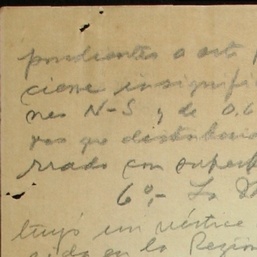 pondientes a est
ciones insignifi
nes N-S y de 0.6
ros que disturbacio
rrado con superf
6º,- La
tuyó un vértice
sido en la Región